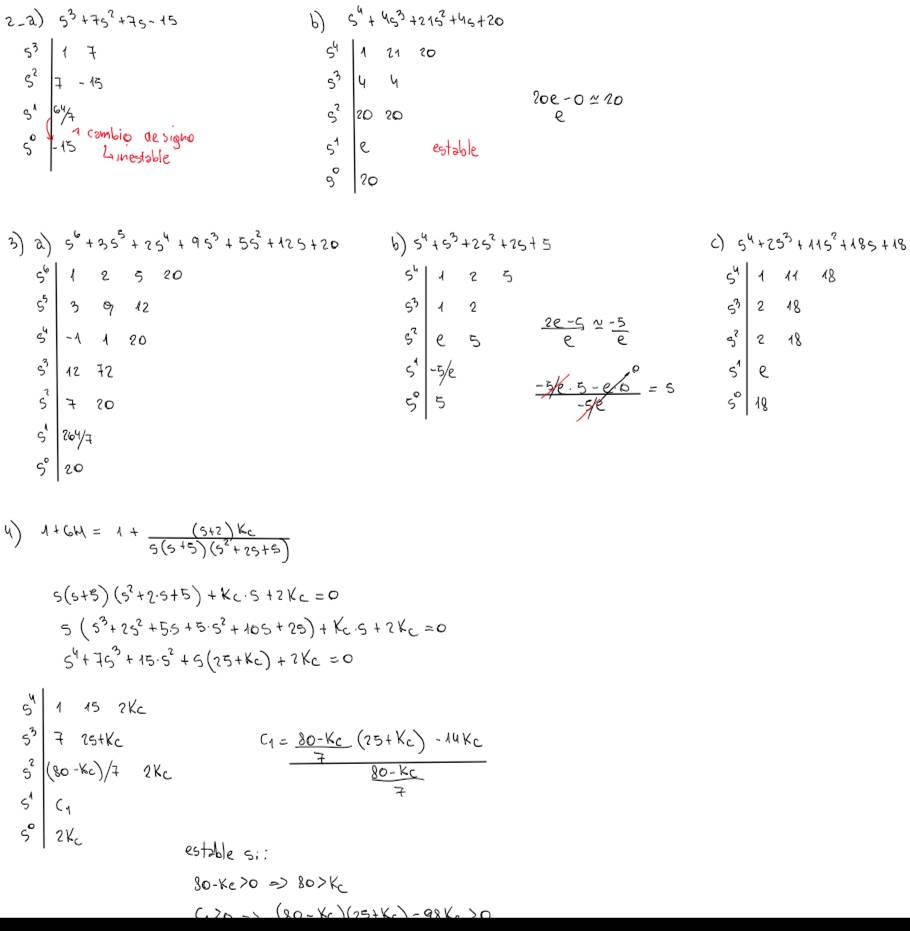 2-a) s³+7s²+7s-15
s³ | 1 7
s² | 7 -15
s¹ | 64/7
s⁰ | -15
1 cambio de signo
↳ inestable
b) s⁴+4s³+21s²+4s+20
s⁴ | 1 21 20
s³ | 4 4
s² | 20 20
s¹ | e
s⁰ | 20
(20e-0)/e ≃ 20
estable
3) a) s⁶+3s⁵+2s⁴+9s³+5s²+12s+20
s⁶ | 1 2 5 20
s⁵ | 3 9 12
s⁴ | -1 1 20
s³ | 12 72
s² | 7 20
s¹ | 264/7
s⁰ | 20
b) s⁴+s³+2s²+2s+5
s⁴ | 1 2 5
s³ | 1 2
s² | e 5
s¹ | -5/e
s⁰ | 5
(2e-5)/e ≃ -5/e
(-5/e · 5 - e·0)/(-5/e) = 5
0
c) s⁴+2s³+11s²+18s+18
s⁴ | 1 11 18
s³ | 2 18
s² | 2 18
s¹ | e
s⁰ | 18
4) 1+GH = 1 + (s+2)Kc/(s(s+5)(s²+2s+5))
s(s+5)(s²+2·s+5)+Kc·s+2Kc=0
s(s³+2s²+5s+5·s²+10s+25)+Kc·s+2Kc=0
s⁴+7s³+15·s²+s(25+Kc)+2Kc=0
s⁴ | 1 15 2Kc
s³ | 7 25+Kc
s² | (80-Kc)/7 2Kc
s¹ | C₁
s⁰ | 2Kc
C₁ = ((80-Kc)/7 (25+Kc) - 14Kc)/((80-Kc)/7)
estable si:
80-Kc>0 => 80>Kc
C₁>0 => (80-Kc)(25+Kc)-98Kc>0